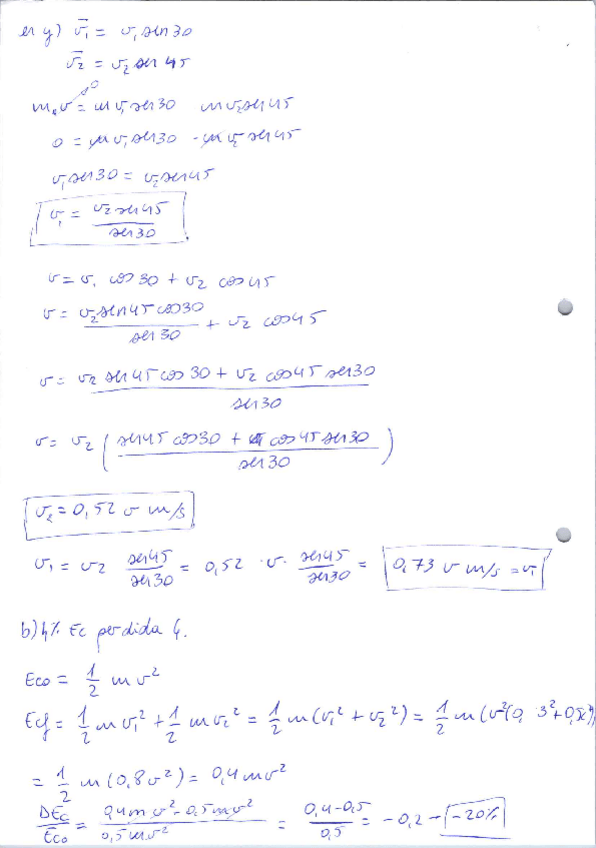 en y) v⃗₁ = v₁ sen 30
v⃗₂ = v₂ sen 45
m·v⁰ = m v₁ sen 30 m v₂ sen 45
0 = m v₁ sen 30 - m v₂ sen 45
v₁ sen 30 = v₂ sen 45
v₁ = v₂ sen 45 / sen 30
v = v₁ cos 30 + v₂ cos 45
v = v₂ sen 45 cos 30 / sen 30 + v₂ cos 45
v = v₂ sen 45 cos 30 + v₂ cos 45 sen 30 / sen 30
v = v₂ ( sen 45 cos 30 + cos 45 sen 30 / sen 30 )
v₂ = 0,52 v m/s
v₁ = v₂ sen 45 / sen 30 = 0,52 · v · sen 45 / sen 30 = 0,73 v m/s = v₁
b) ¿% Ec perdida ?
Eco = 1/2 m v²
Ecf = 1/2 m v₁² + 1/2 m v₂² = 1/2 m (v₁² + v₂²) = 1/2 m (v²(0, 3² + 0,52²))
= 1/2 m (0,8 v²) = 0,4 m v²
ΔEc / Eco = 0,4 m v² - 0,5 m v² / 0,5 m v² = 0,4 - 0,5 / 0,5 = -0,2 - -20%